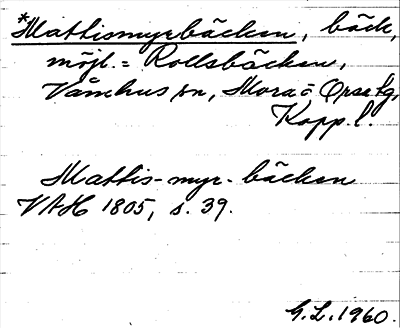 *Mattismyrbäcken, bäck,
möjl. = Rollsbäcken,
Våmhus sn, Mora o Orsa tg,
Kopp. l.
Mattis-myr-bäcken
VAH 1805, s. 39.
G.L. 1960.